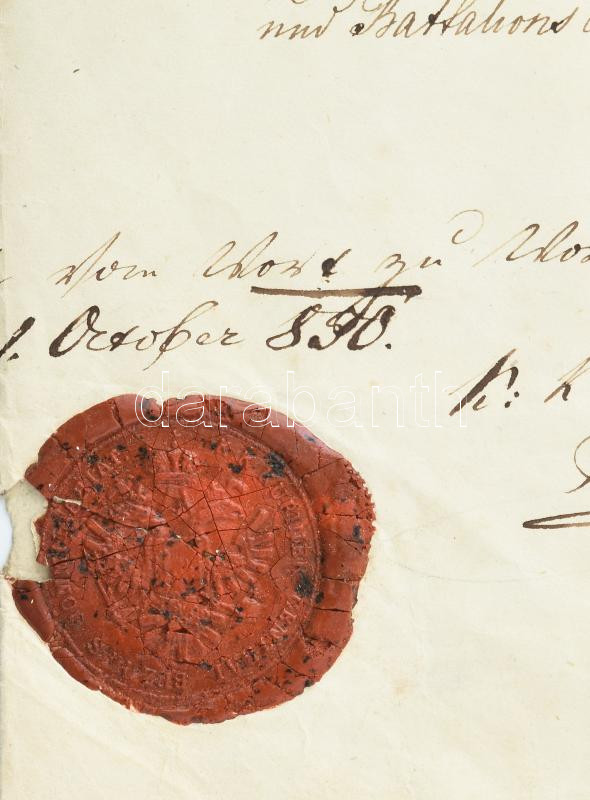 und Battalions
vom Wort zu Wor
1. October 850.
k: k
darabanth